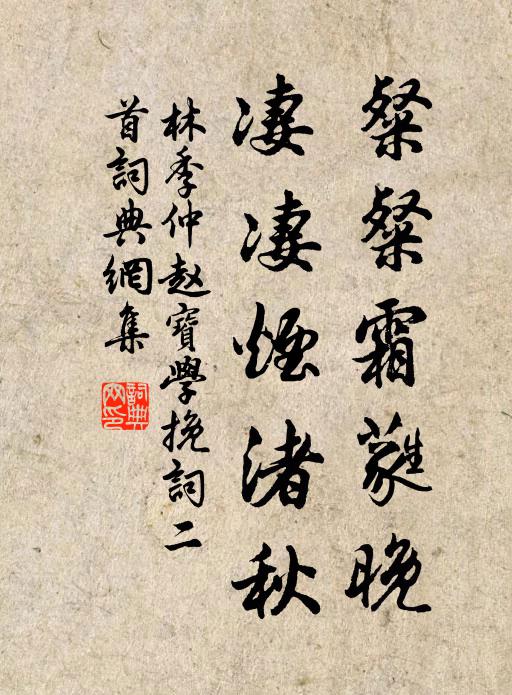 粲粲霜蕤晚
凄凄煙渚秋
林季仲赵寶學挽詞二
首詞典網集
詞典
网印